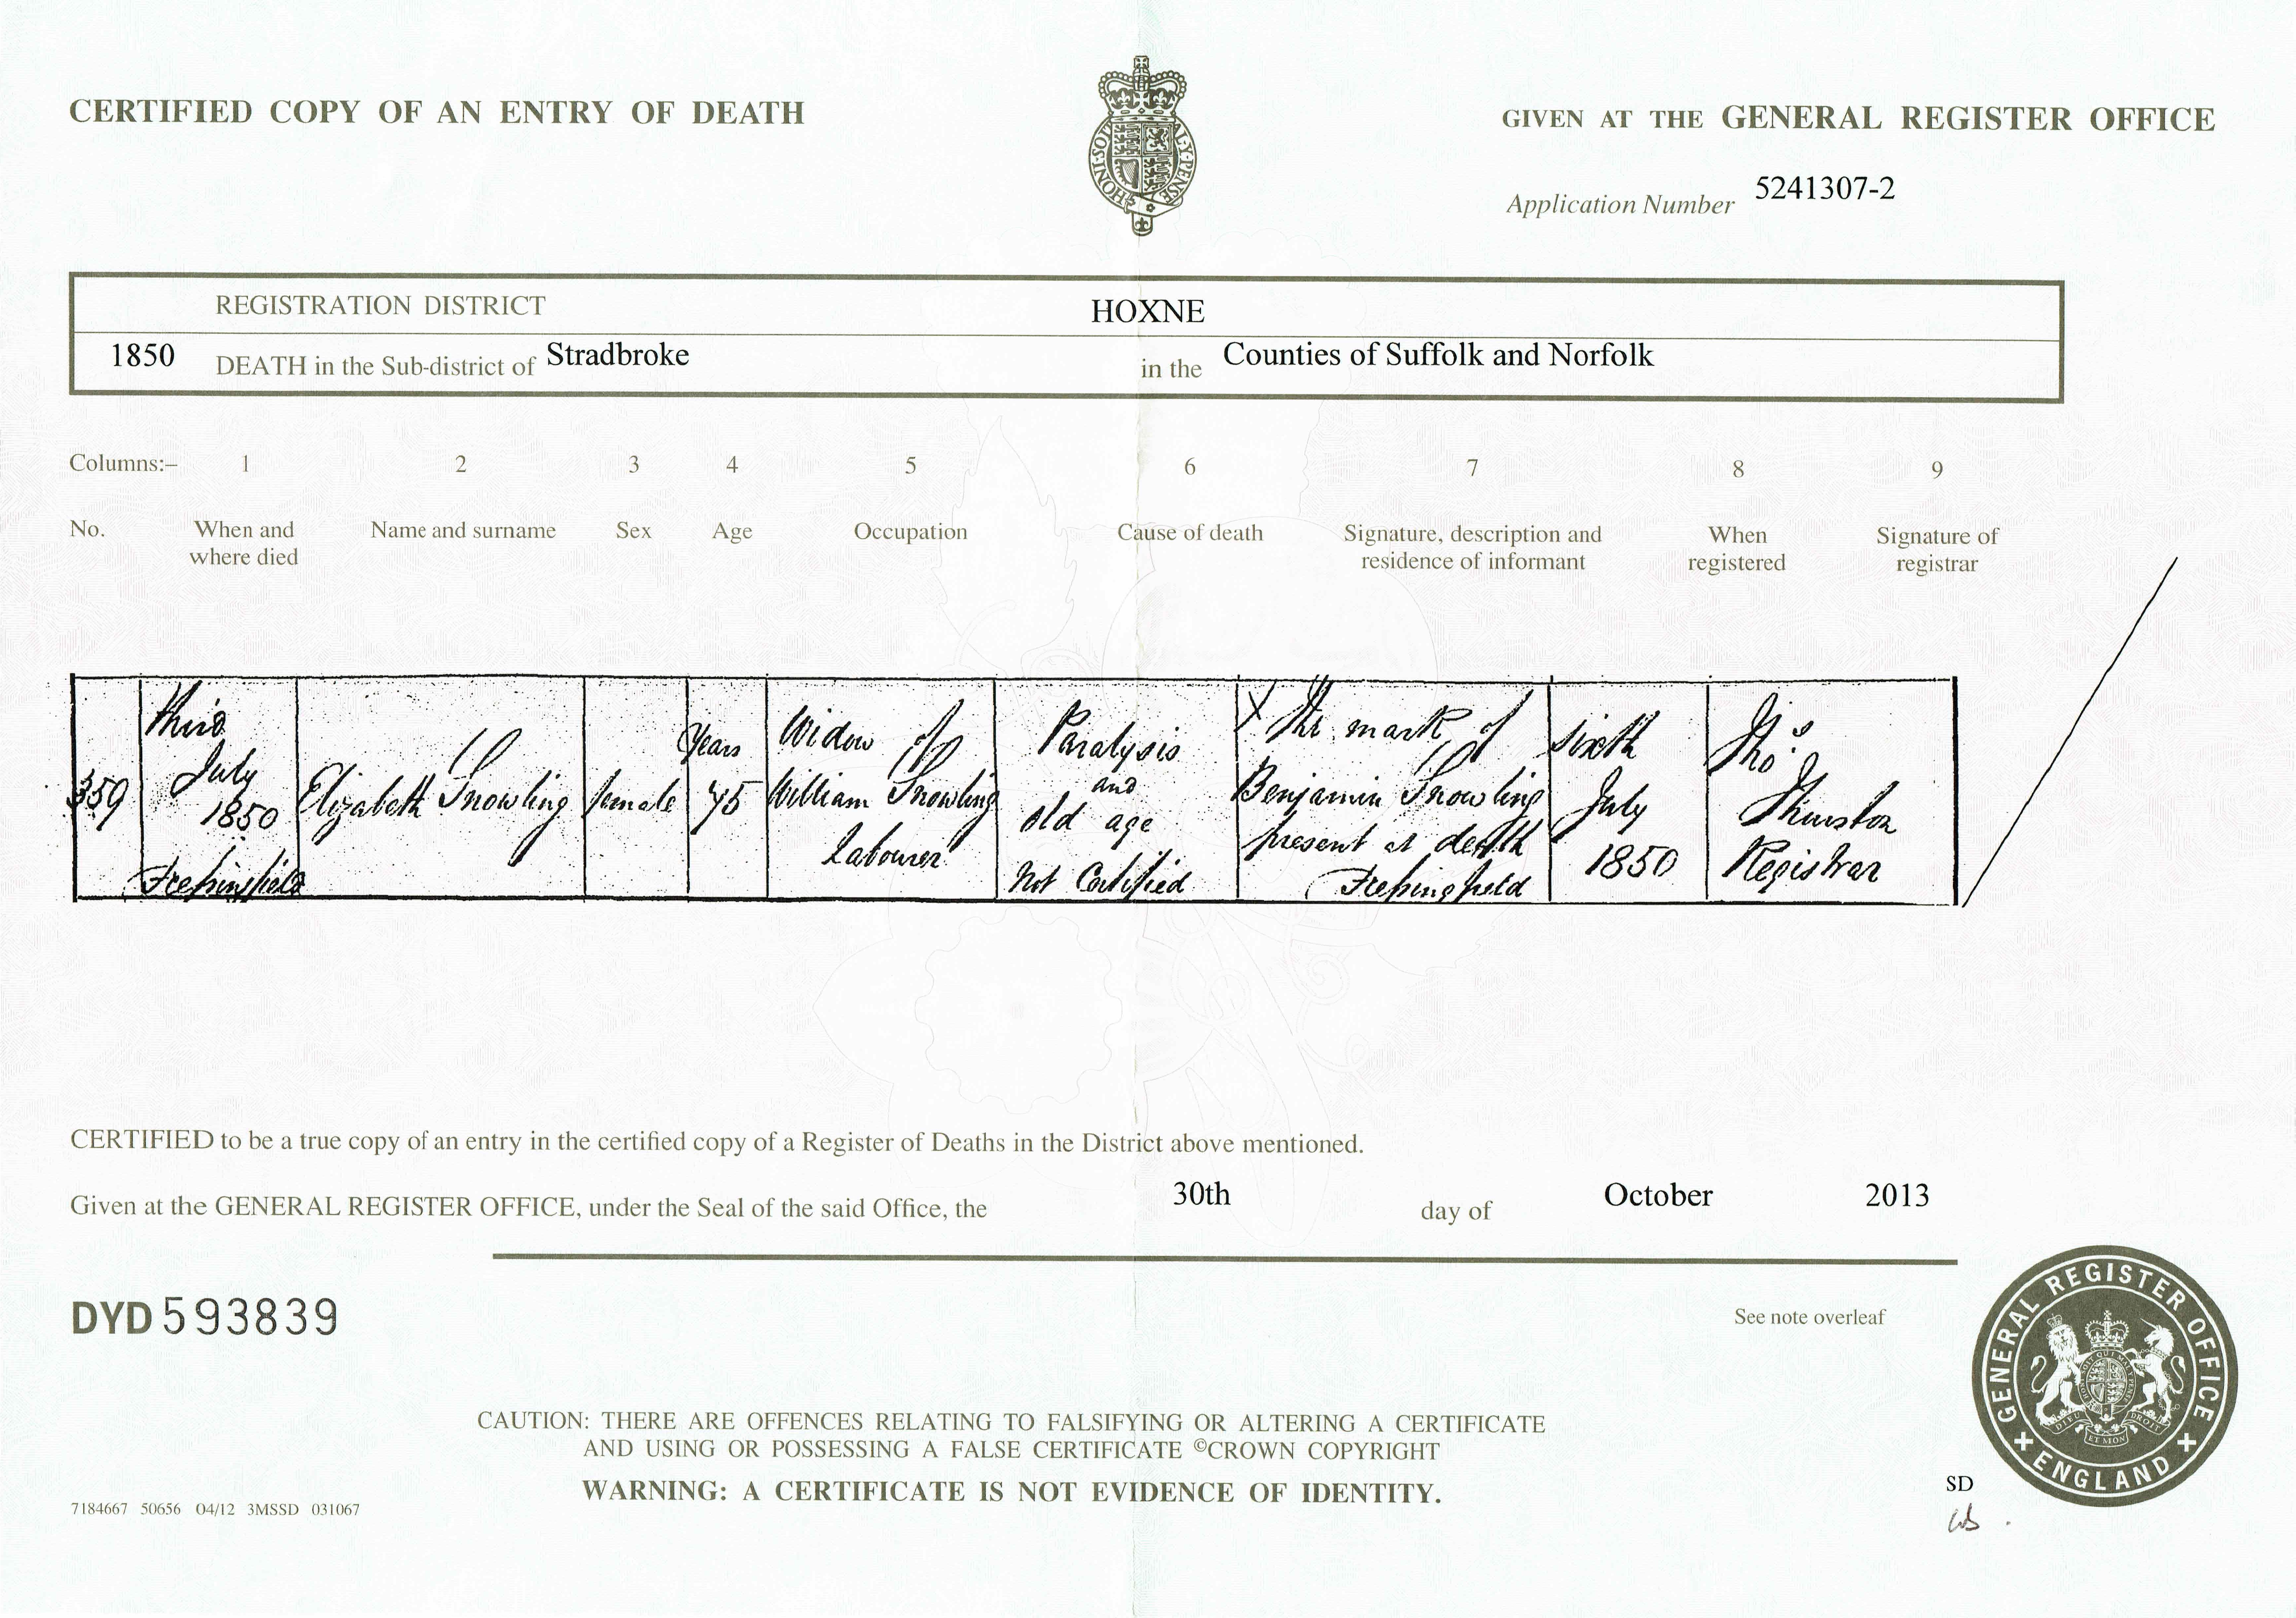 CERTIFIED COPY OF AN ENTRY OF DEATH
HONI·SOIT
AL·Y·PENSE
GIVEN AT THE GENERAL REGISTER OFFICE
Application Number 5241307-2
REGISTRATION DISTRICT HOXNE
1850 DEATH in the Sub-district of Stradbroke in the Counties of Suffolk and Norfolk
Columns:– 1 2 3 4 5 6 7 8 9
No. When and where died Name and surname Sex Age Occupation Cause of death Signature, description and residence of informant When registered Signature of registrar
359
Third
July
1850
Fresingfield
Elizabeth Snowling
female
Years
75
Widow of
William Snowling
Labourer
Paralysis
and
old age
Not Certified
X The mark of
Benjamin Snowling
present at death
Fresingfield
sixth
July
1850
Thos
Thurston
Registrar
CERTIFIED to be a true copy of an entry in the certified copy of a Register of Deaths in the District above mentioned.
Given at the GENERAL REGISTER OFFICE, under the Seal of the said Office, the 30th day of October 2013
DYD 593839
See note overleaf
GENERAL REGISTER OFFICE
ENGLAND
DIEU ET MON DROIT
CAUTION: THERE ARE OFFENCES RELATING TO FALSIFYING OR ALTERING A CERTIFICATE
AND USING OR POSSESSING A FALSE CERTIFICATE ©CROWN COPYRIGHT
WARNING: A CERTIFICATE IS NOT EVIDENCE OF IDENTITY.
7184667 50656 04/12 3MSSD 031067
SD